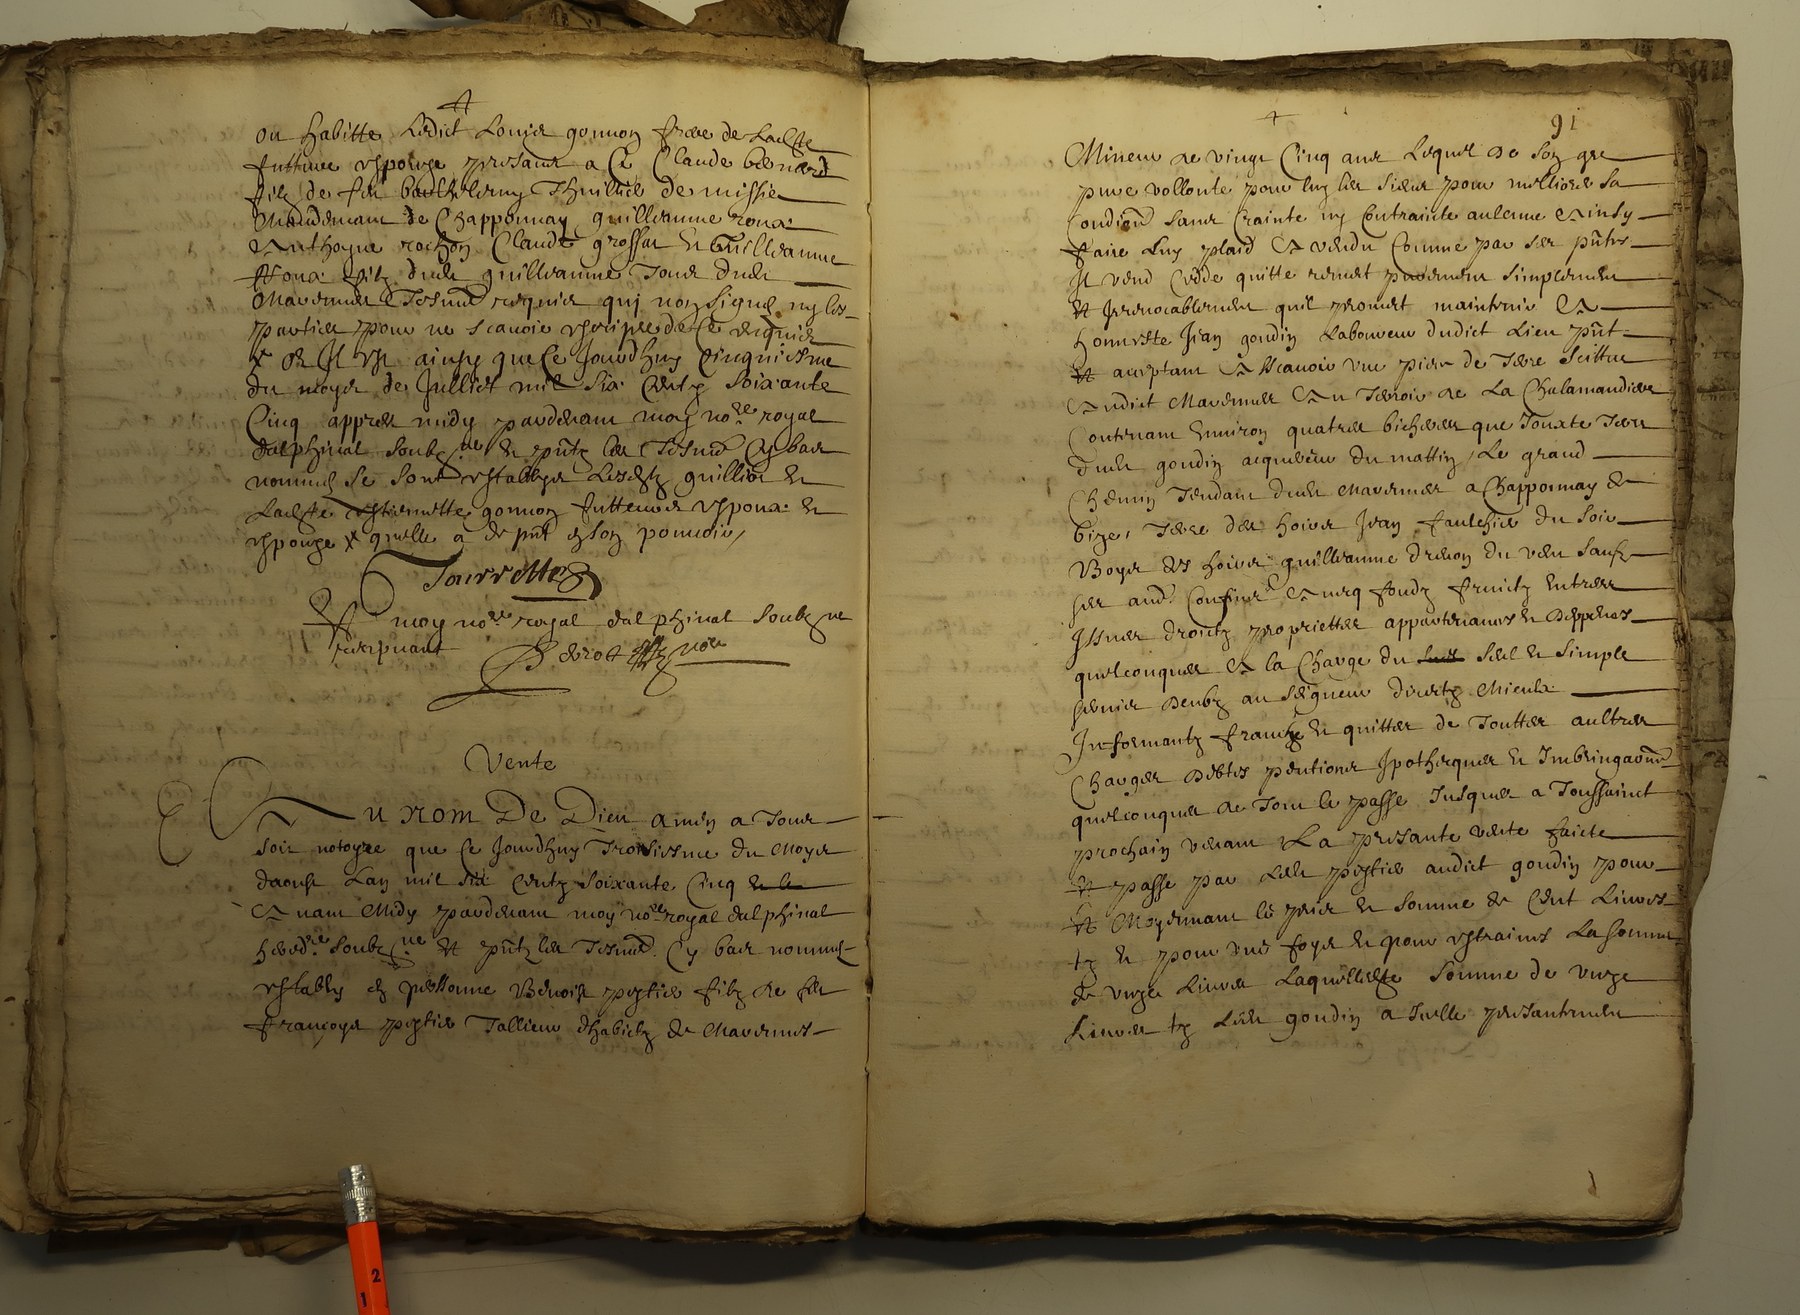 ou habitte Ledict Louis gonnon frere de Ladicte
future espouze presantz a Ce Claude bernard
filz de feu barthelemy Thuillier de missie
Mandement de Chapponnay guilleaume roux
Anthoyne rochon Claude grossat et Guilleaume
Roux filz dudit guilleaume Tous dudit
Marennes Tesmoins requis quj nont signe ny les
parties pour ne scavoir escripre de Ce enquis
Il est ainsy que Ce Jourdhuy Cinquiesme
du moys de Julliet mil six Centz soixante
Cinq appres midy pardevant moy no.re royal
dalphinal soubz.ne et pntz les Tesmoins Cy bas
nommes se sont establys Lesditz guillion et
Ladicte estiennette gonnon futteurs espoux et
espouze quelle a de pnt en son pouvoir
Tourrettes
Et moy no.re royal dalphinal soubz.ne
recepvant
Vente
Au nom De Dieu amen a Tous
soit notoyre que Ce Jourdhuy Troisiesme du Moys
daoust Lan mil six Centz soixante Cinq
Avant Midy pardevant moy no.re royal dalphinal
hered.re soubz.ne et pntz les Tesmoins Cy bas nommes
estably en personne Benoist pestier filz de feu
francoys pestier Tallieur dhabitz de Marennes
91
Mineur de vingt Cinq ans Lequel de son gre
pure vollonte pour luy les siens pour melliorer sa
Condion sans Crainte ny Contrainte aulcune Ainsy
faire Luy plaid A vendu Comme par ses pntes
Il vend Cedde quitte remet purement simplement
et Jrrevocablement quil promet maintenir A
honneste Jean goudin Laboureur dudict Lieu pnt
et aceptant A scavoir une piece de Terre scittue
Audict Marennes Au Terroir de La Chalamandiere
Contenant Environ quatre bicherees que Jouxte Terre
dudit goudin acquereur du mattin, Le grand
Chemin Tendant dudit Marennes a Chapponnay de
bize, Terre des hoirs Jean faulchier du soir
Boys des hoirs guilleaume drevon du vent sauf
ses autres Confins Avecq fondz fruictz Entrees
Issues droictz propriettes appartenances et Deppences
quelconques A la Charge du seul et simple
servier deubz au seigneur directz Mieulx
Informantz francz et quitter de Touttes aultres
Charges Debtes pentions Jpotheques et Imbringaons
quelconques de Tout le passe Jusques a Toussainct
prochain venant La presante vente faicte
et passe par Ledit pestier audict goudin pour
et Moyennant le prix et somme de Cent Livres
tz et pour une foys et pour estraines La somme
de vingt Livres Laquelle somme de vingt
Livres tz Ledit goudin a Icelle presantement